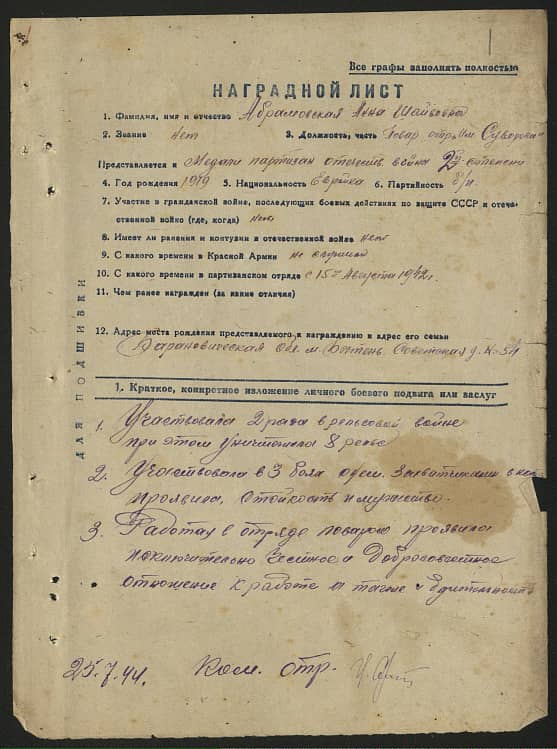 1
Все графы заполнять полностью
НАГРАДНОЙ ЛИСТ
1. Фамилия, имя и отчество Абрамовская Анна Шайвовна
2. Звание нет 3. Должность, часть Повар отр. Им. Суворова
Представляется к Медали партизан отечеств война 2й степени
4. Год рождения 1919 5. Национальность Еврейка 6. Партийность б/п.
7. Участие в гражданской войне, последующих боевых действиях по защите СССР и отече-
ственной войне (где, когда) нет
8. Имеет ли ранения и контузии в отечественной войне нет
9. С какого времени в Красной Армии не служила
10. С какого времени в партизанском отряде с 15го Августа 1942 г.
11. Чем ранее награжден (за какие отличия)
12. Адрес места рождения представляемого к награждению и адрес его семьи
Барановическая обл. м. Советская у. N-54
ДЛЯ ПОДШИВКИ
1. Краткое, конкретное изложение личного боевого подвига или заслуг
1. Участвовала 2 раза в рельсовой войне
при этом уничтожила 8 рельс
2. Участвовала в 3 боях с нем. захватчиками в
проявила, стойкость и мужество.
3. Работая в отряде поваром проявила
исключительно честное и добросовестное
отношение к работе а также и бдительность
25.7.44. Ком. отр.